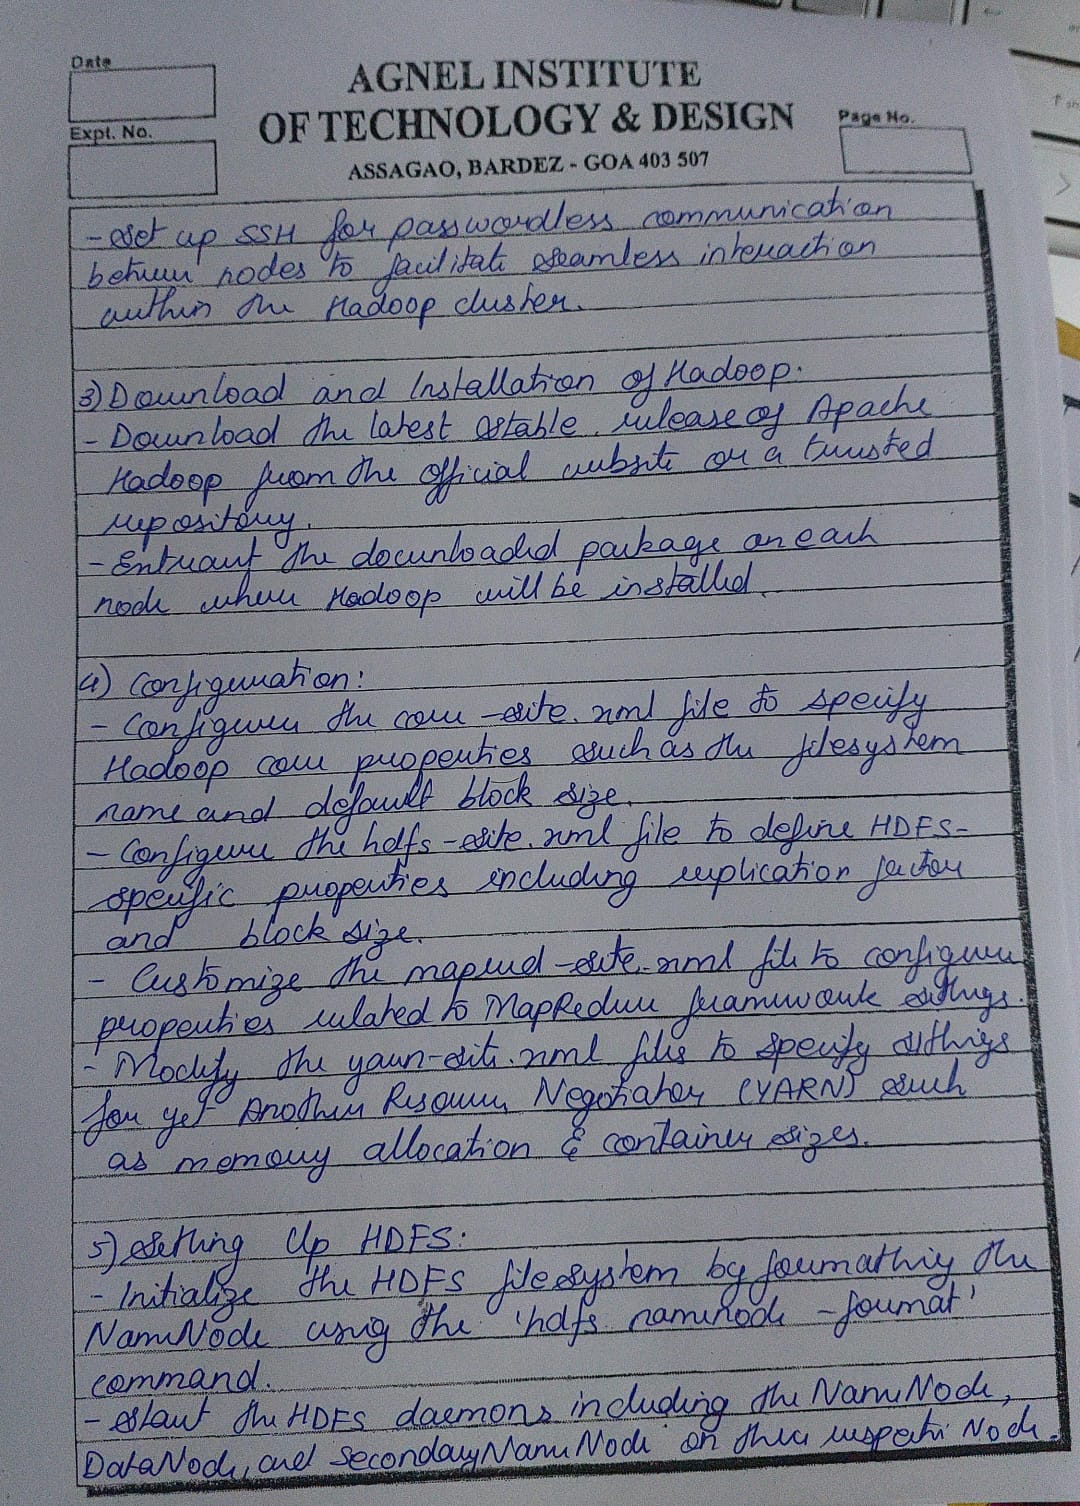 Date
AGNEL INSTITUTE
OF TECHNOLOGY & DESIGN
Expt. No.
Page No.
ASSAGAO, BARDEZ - GOA 403 507
- Set up SSH for passwordless communication
between nodes to facilitate seamless interaction
within the Hadoop cluster.
3) Download and Installation of Hadoop.
- Download the latest stable release of Apache
Hadoop from the official website or a trusted
repository.
- Extract the downloaded package on each
node where Hadoop will be installed.
4) Configuration:
- Configure the core-site.xml file to specify
Hadoop core properties such as the filesystem
name and default block size.
- Configure the hdfs-site.xml file to define HDFS-
specific properties including replication factor
and block size.
- Customize the mapred-site.xml file to configure
properties related to MapReduce framework settings.
- Modify the yarn-site.xml files to specify settings
for yet Another Resource Negotiator (YARN) such
as memory allocation & container sizes.
5) Setting Up HDFS:
- Initialize the HDFS filesystem by formatting the
NameNode using the 'hdfs namenode -format'
command.
- Start the HDFS daemons including the NameNode,
DataNode, and SecondaryNameNode on their respective Node.